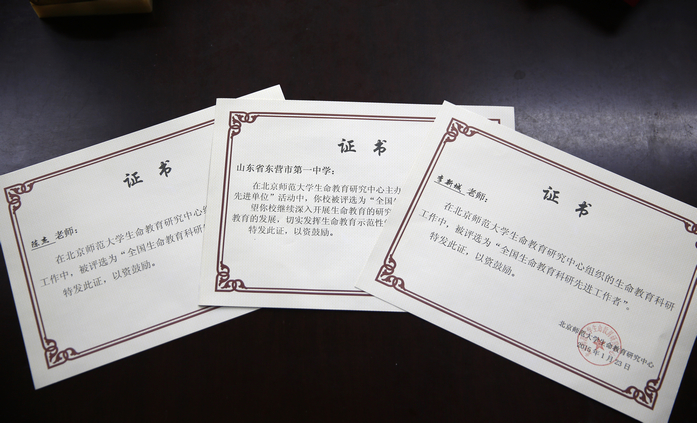 证书
陈杰 老师:
在北京师范大学生命教育研究中心组
工作中，被评选为“全国生命教育科研
特发此证，以资鼓励。
证书
山东省东营市第一中学:
在北京师范大学生命教育研究中心主办
先进单位”活动中，你校被评选为“全国
望你校继续深入开展生命教育的研究
教育的发展，切实发挥生命教育示范性
特发此证，以资鼓励。
证书
李新城 老师:
在北京师范大学生命教育研究中心组织的生命教育科研
工作中，被评选为“全国生命教育科研先进工作者”。
特发此证，以资鼓励。
北京师范大学生命教育研究中心
2016年1月23日